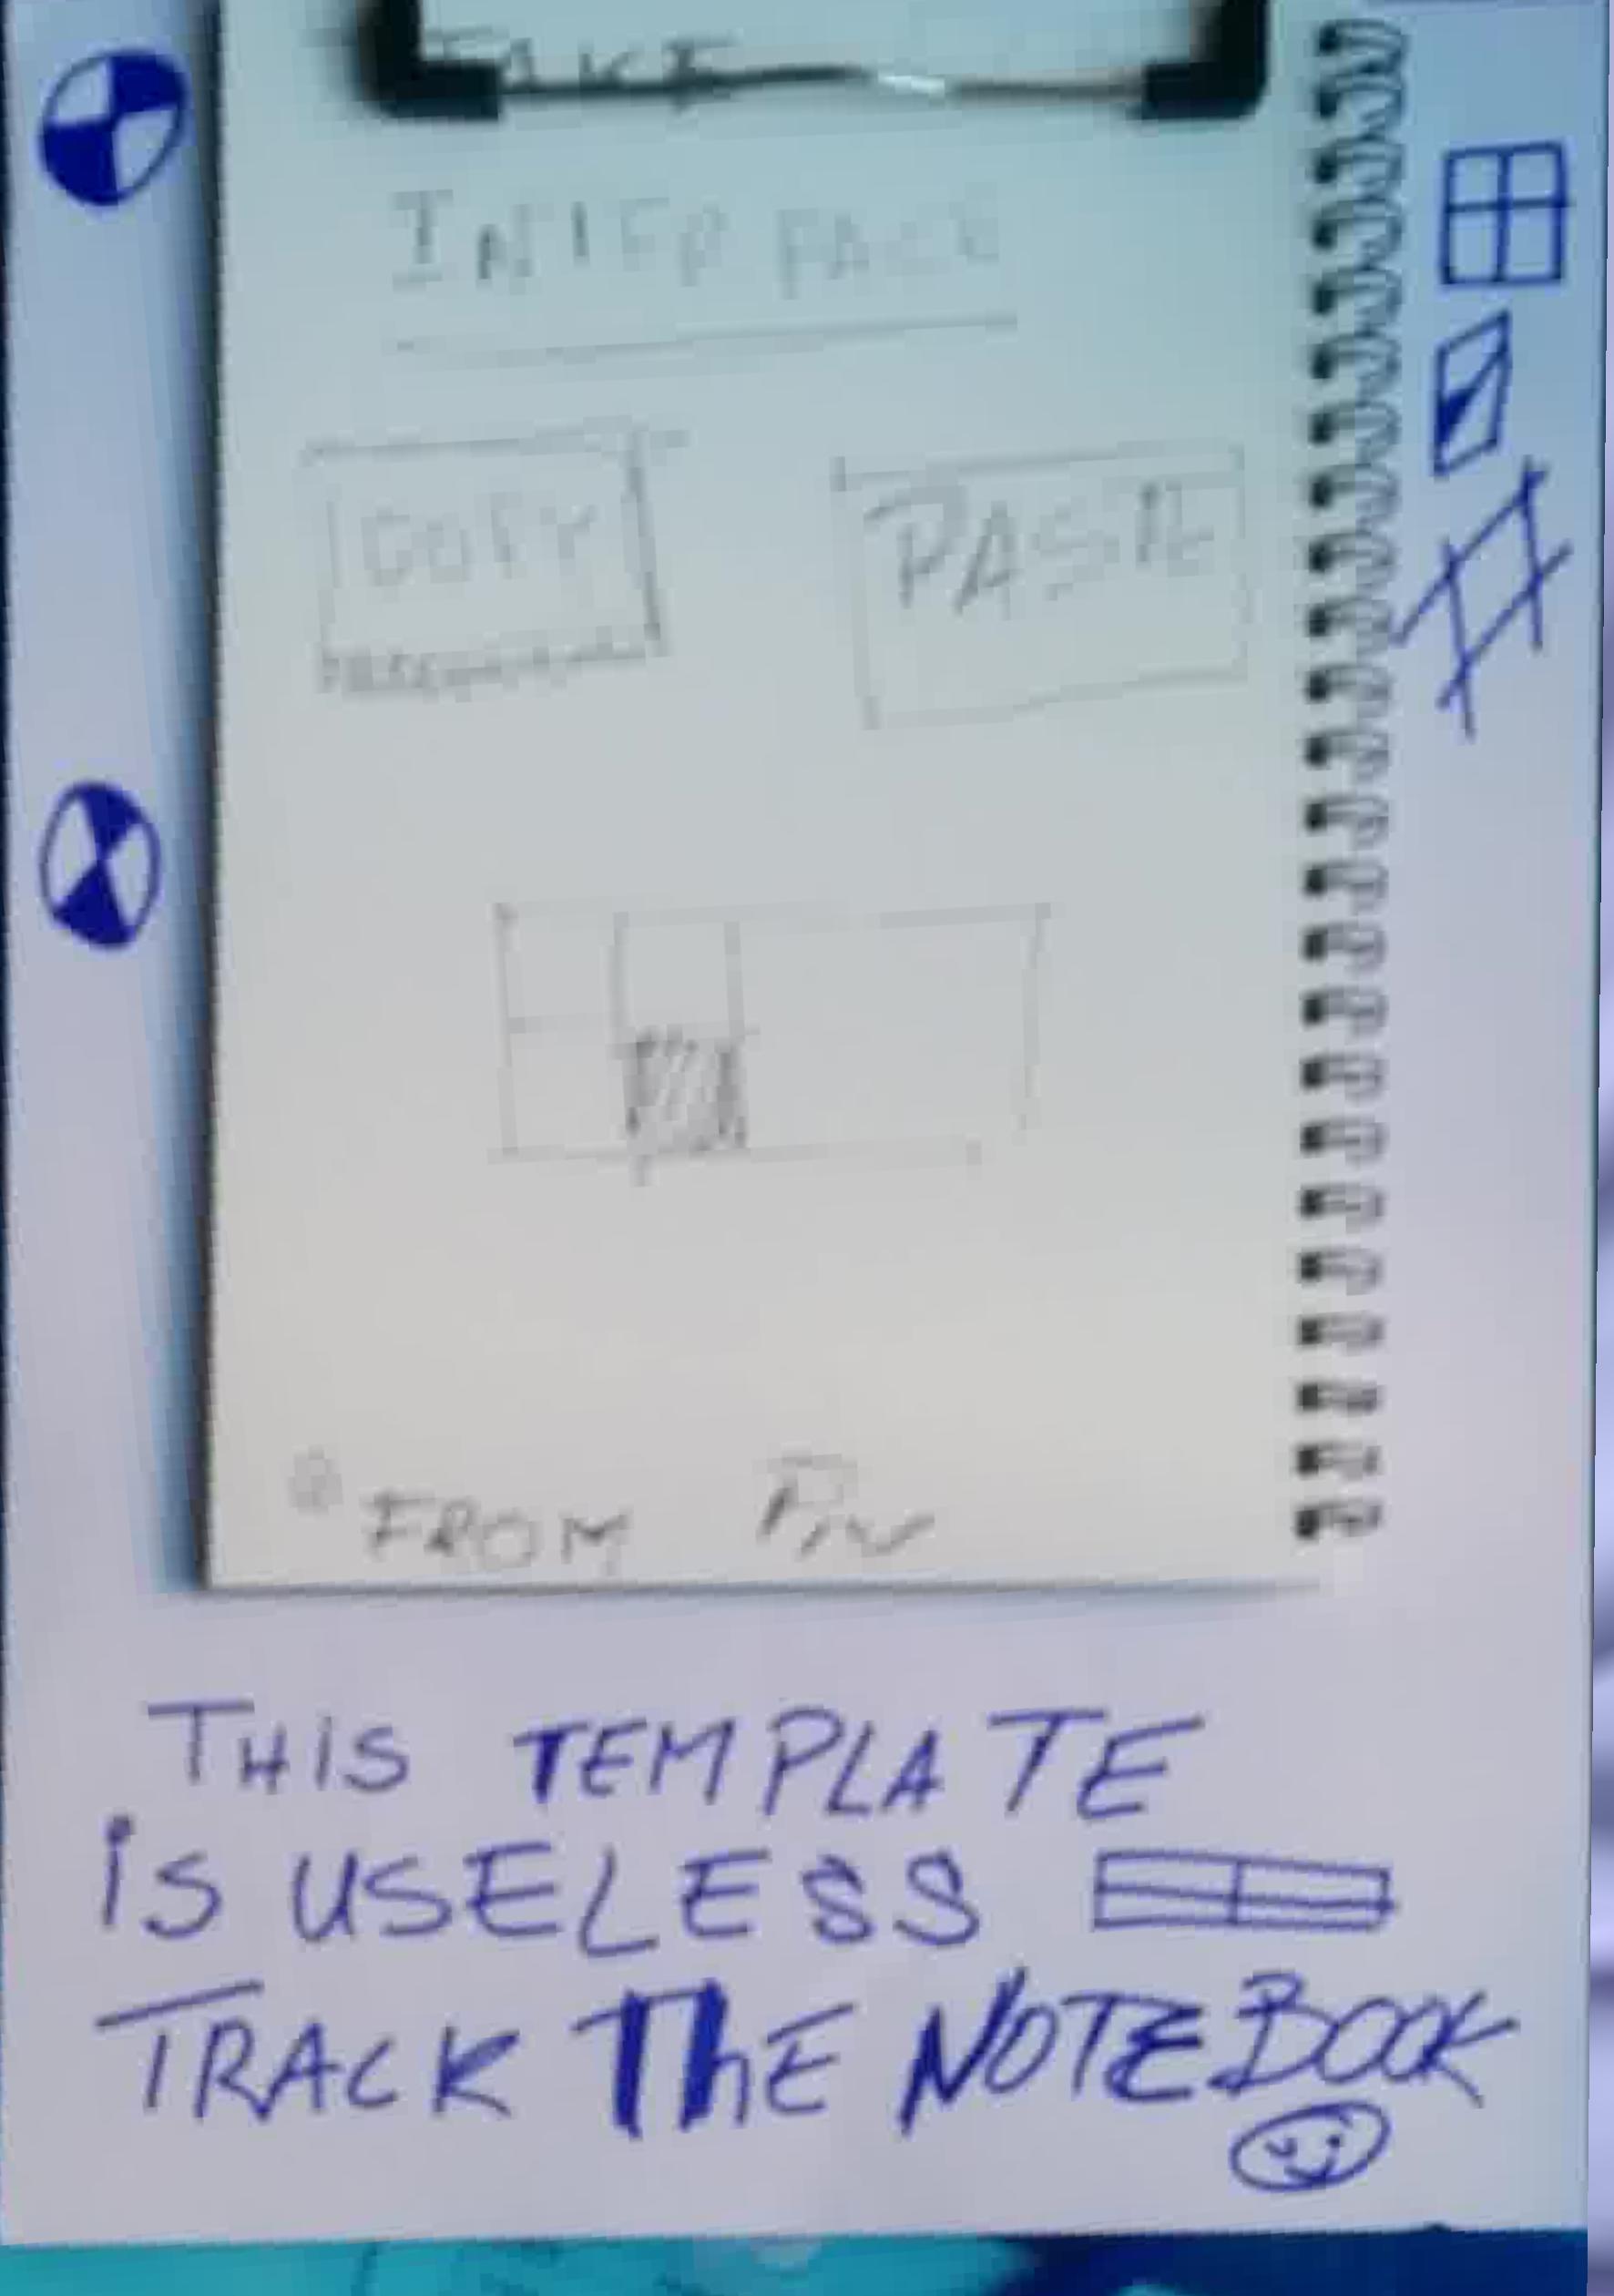 FAKE
INTERFACE
COPY
PASTE
FROM
THiS TEMPLATE
iS USELESS
TRACK ThE NOTEBOOK